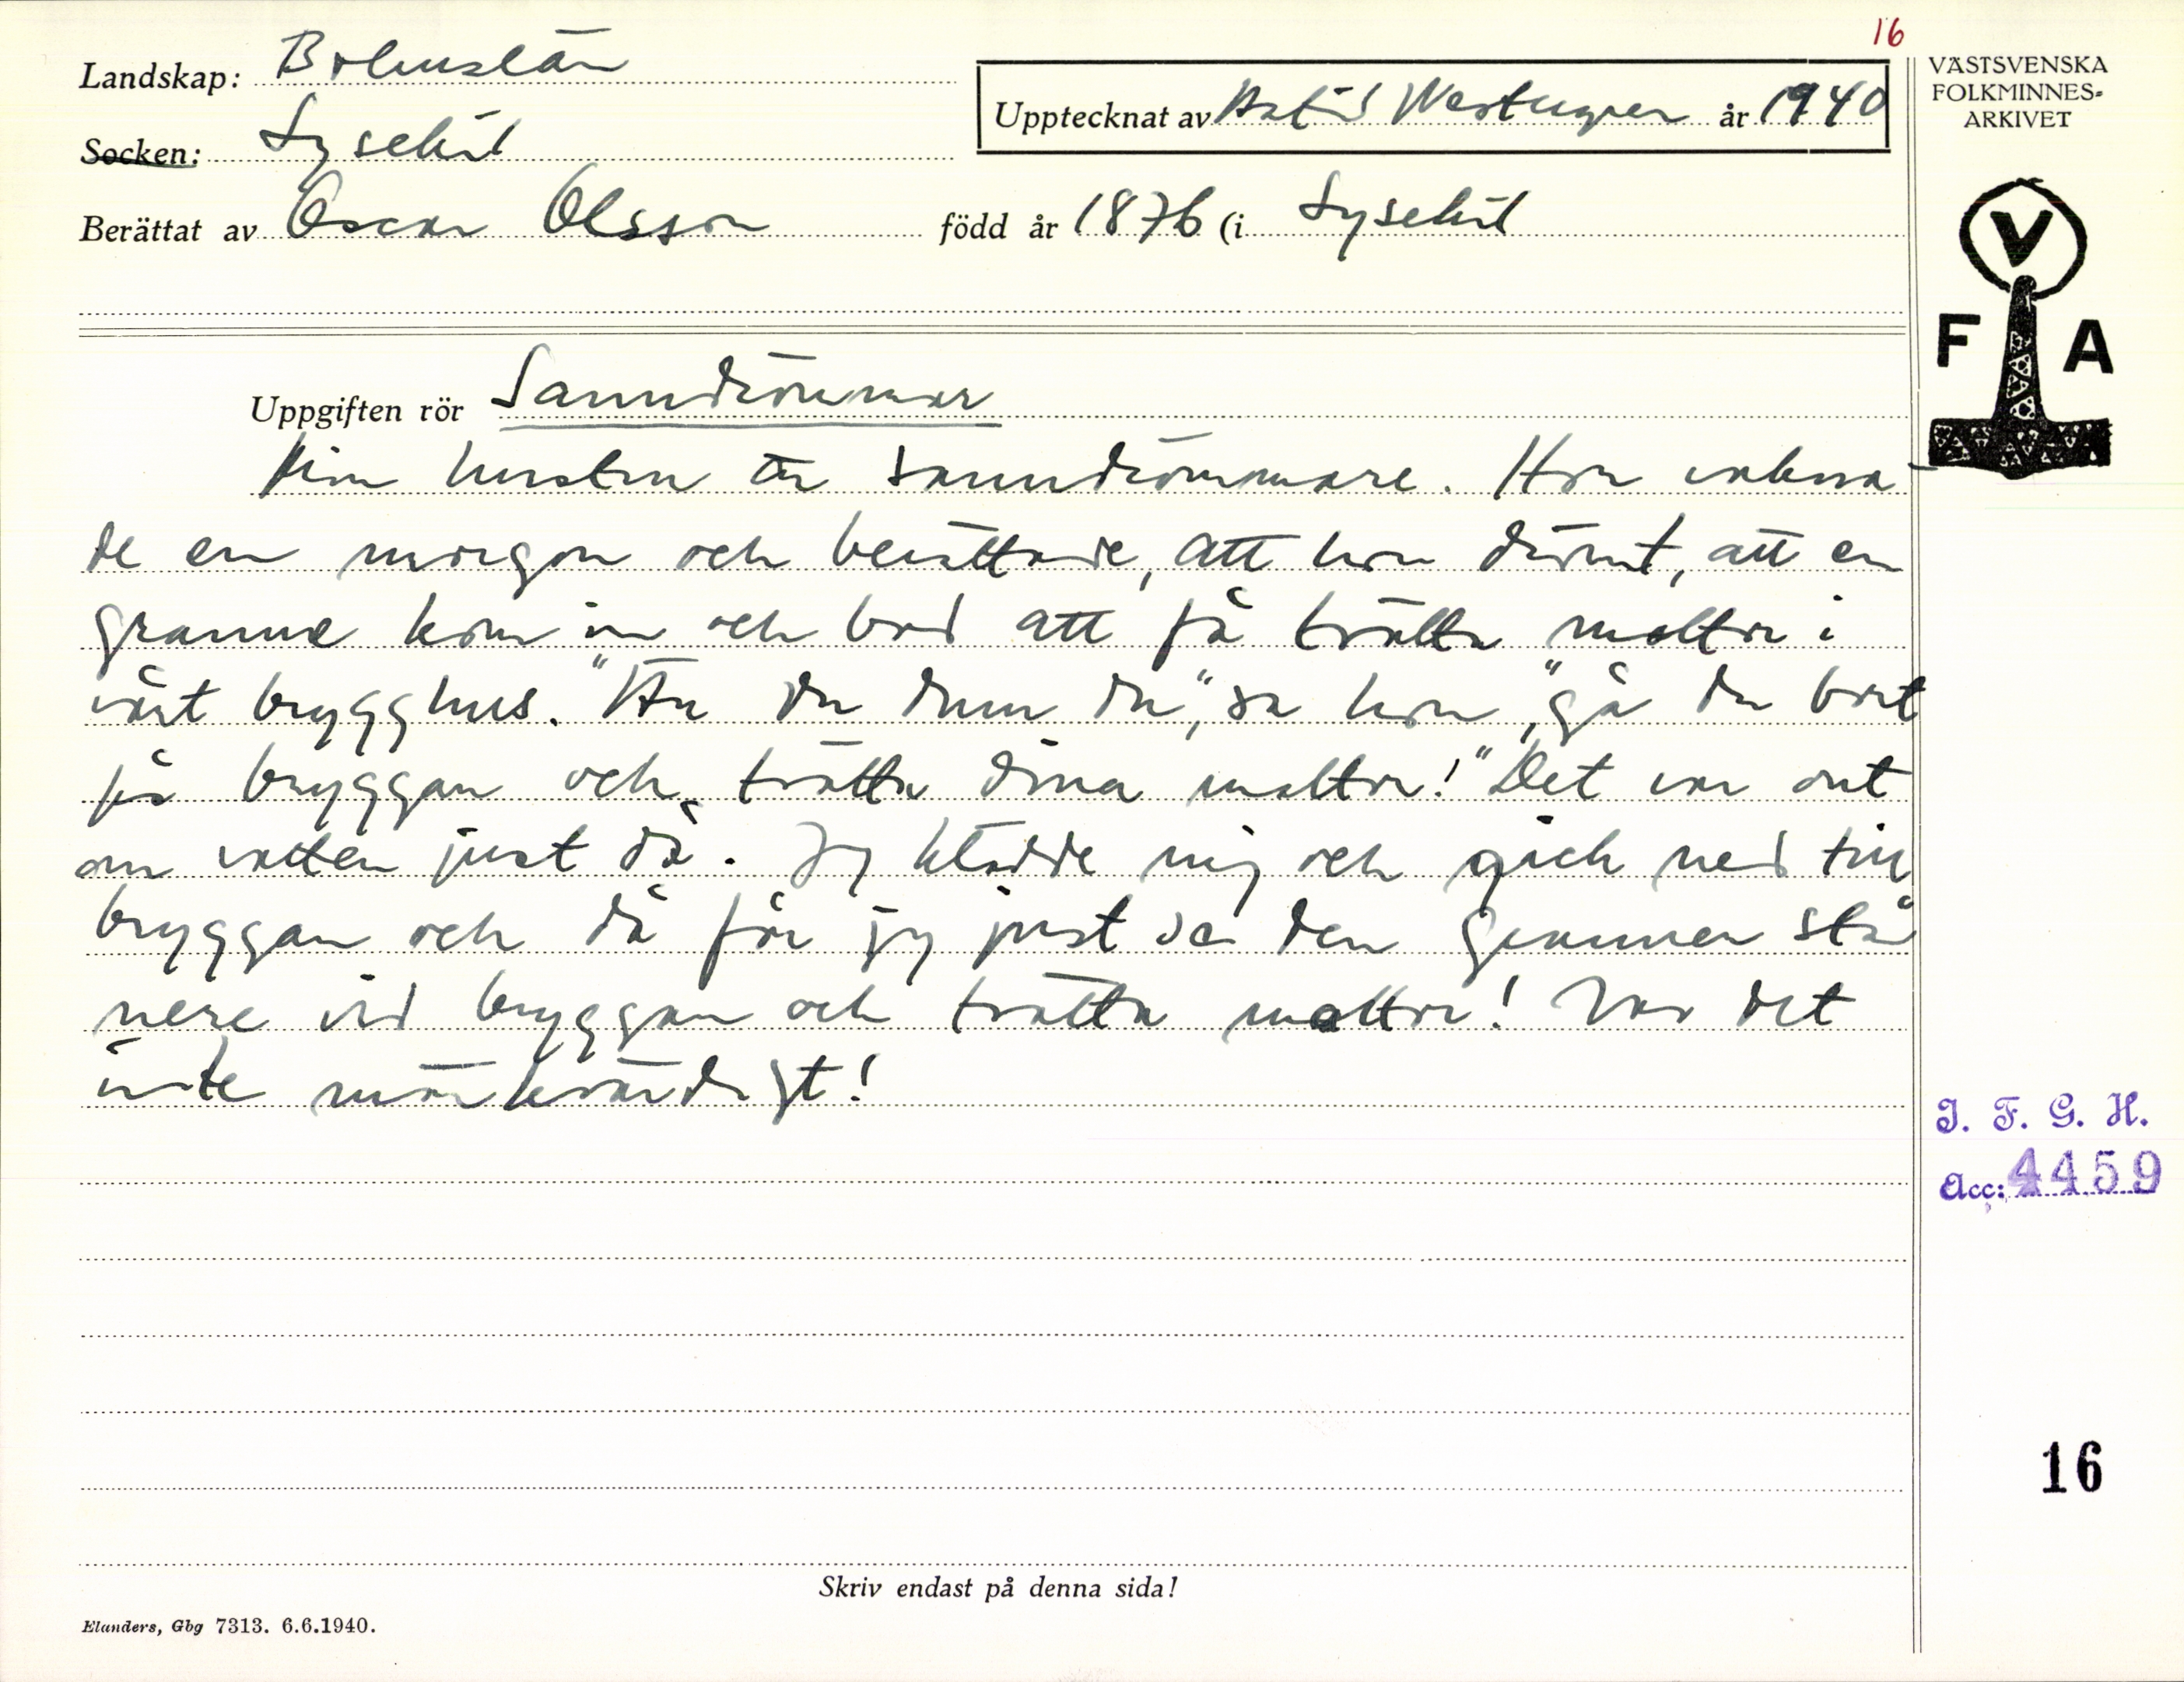 16
Landskap: Bohuslän
Upptecknat av Westergren år 1940
VÄSTSVENSKA
FOLKMINNES-
ARKIVET
Socken: Lysekil
Berättat av Oscar Olsson född år 1876 (i Lysekil
V
F A
Uppgiften rör Sanndrömmar
Min hustru är sanndrömmare. Hon vakna-
de en morgon och berättade, att hon drömt, att en
granne kom in och bad att få tvätta mattor i
vårt brygghus. "Än du dum du", sa hon, "gå du bort
på bryggan och tvätta dina mattor!" Det var ont
om vatten just då. Jg klädde mig och gick ned till
bryggan och då får jg just se den grannen stå
nere vid bryggan och tvätta mattor! Var det
inte märkvärdigt!
I. F. G. H.
Acc: 4459
16
Skriv endast på denna sida!
Elanders, Gbg 7313. 6.6.1940.